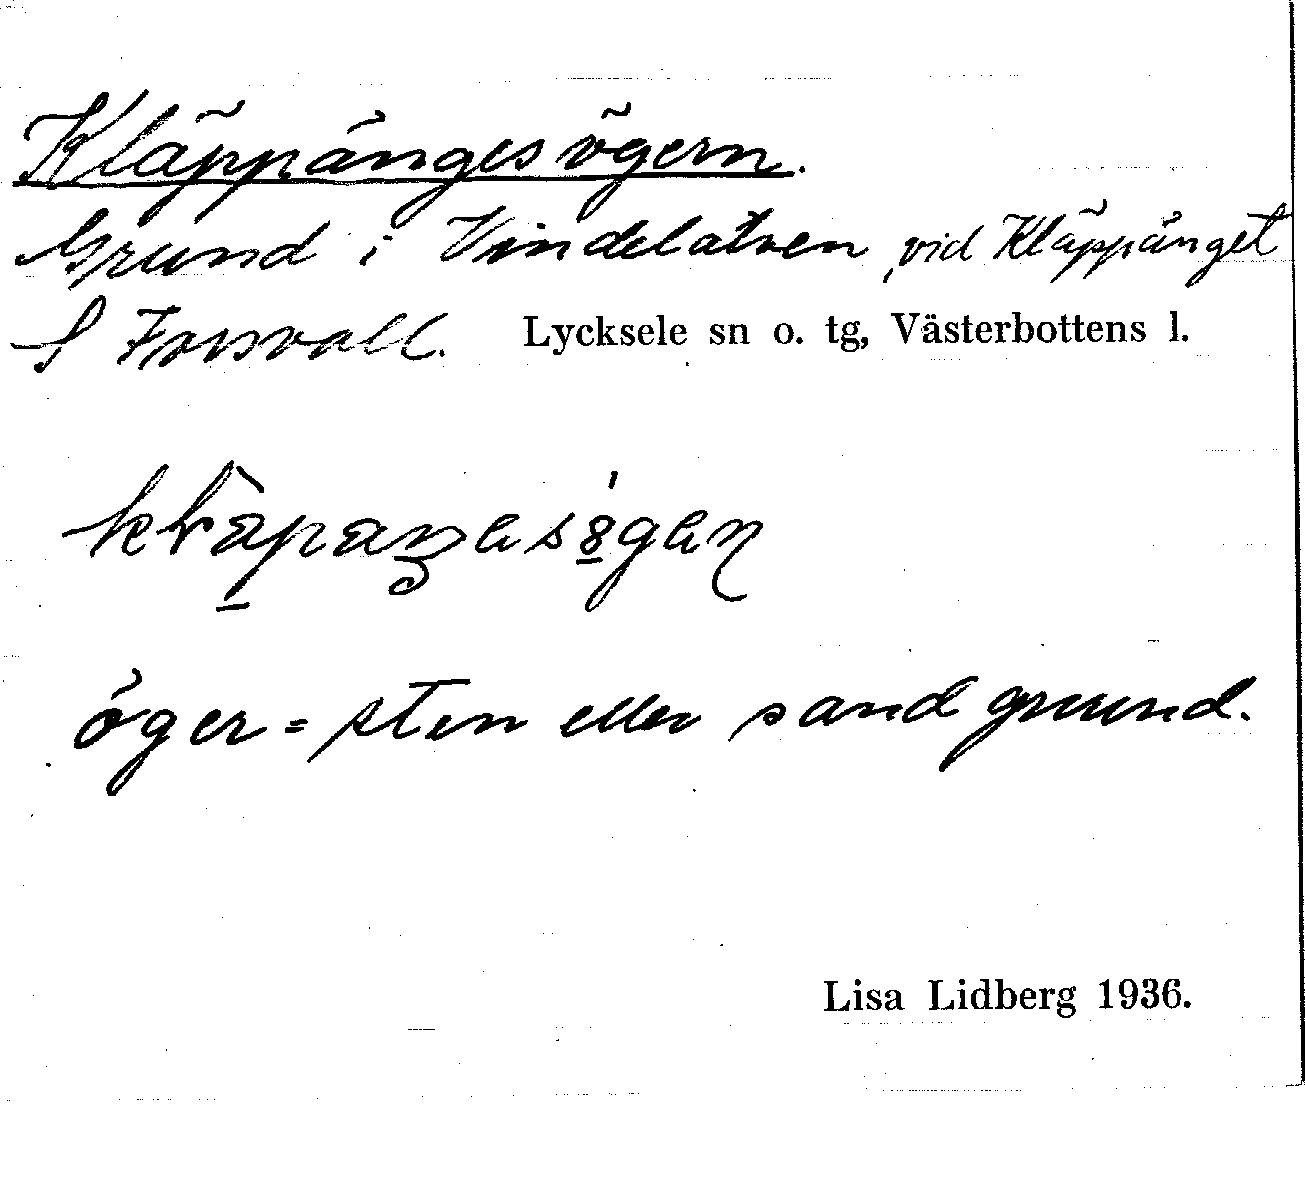 Kläppängesögern.
Grund i Vindelälven, vid Kläppänget
S Forsvall. Lycksele sn o. tg, Västerbottens l.
öger = sten eller sandgrund.
Lisa Lidberg 1936.